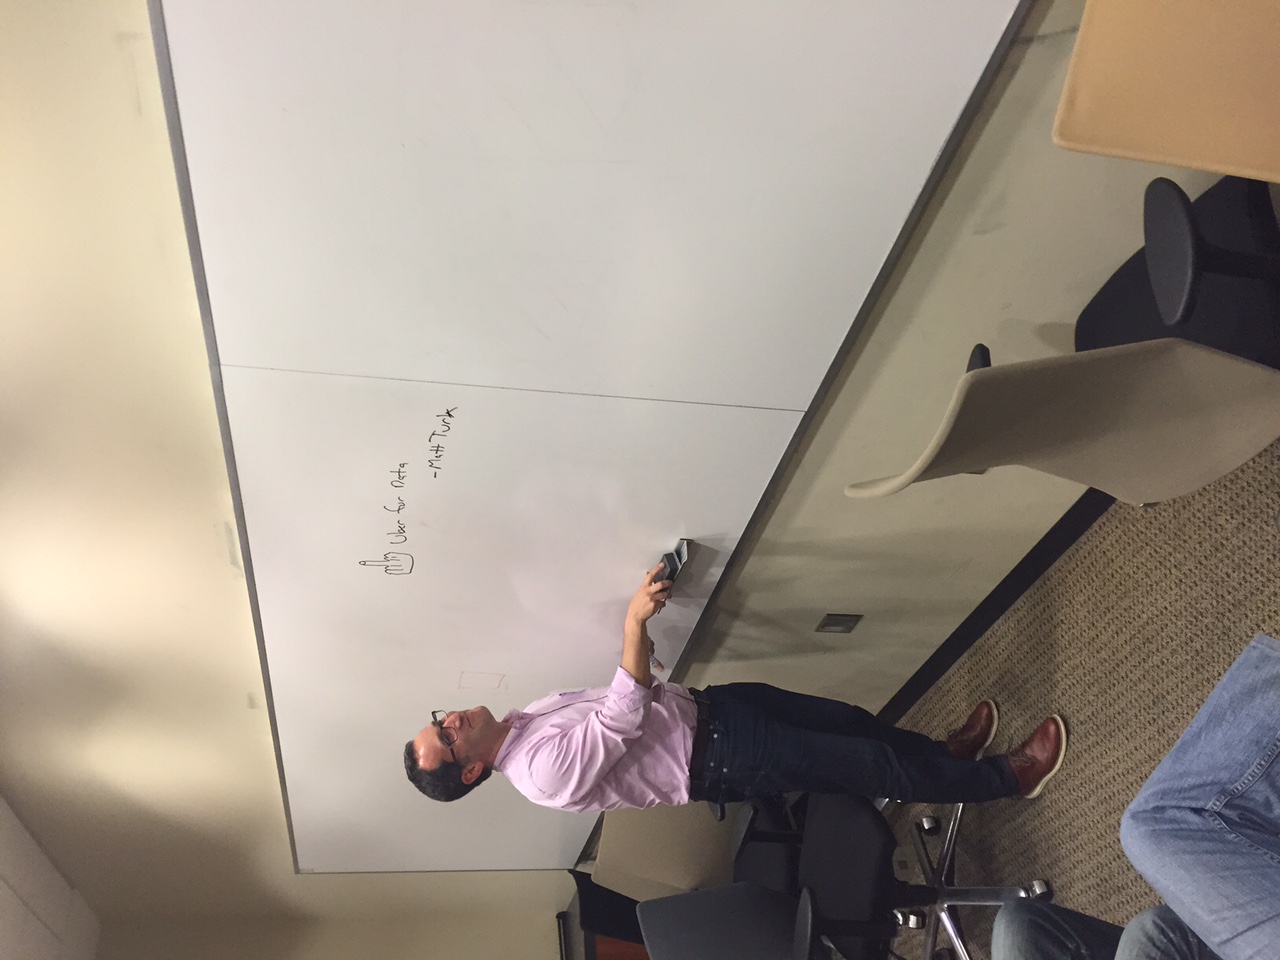 Uber for Data
-Matt Turk